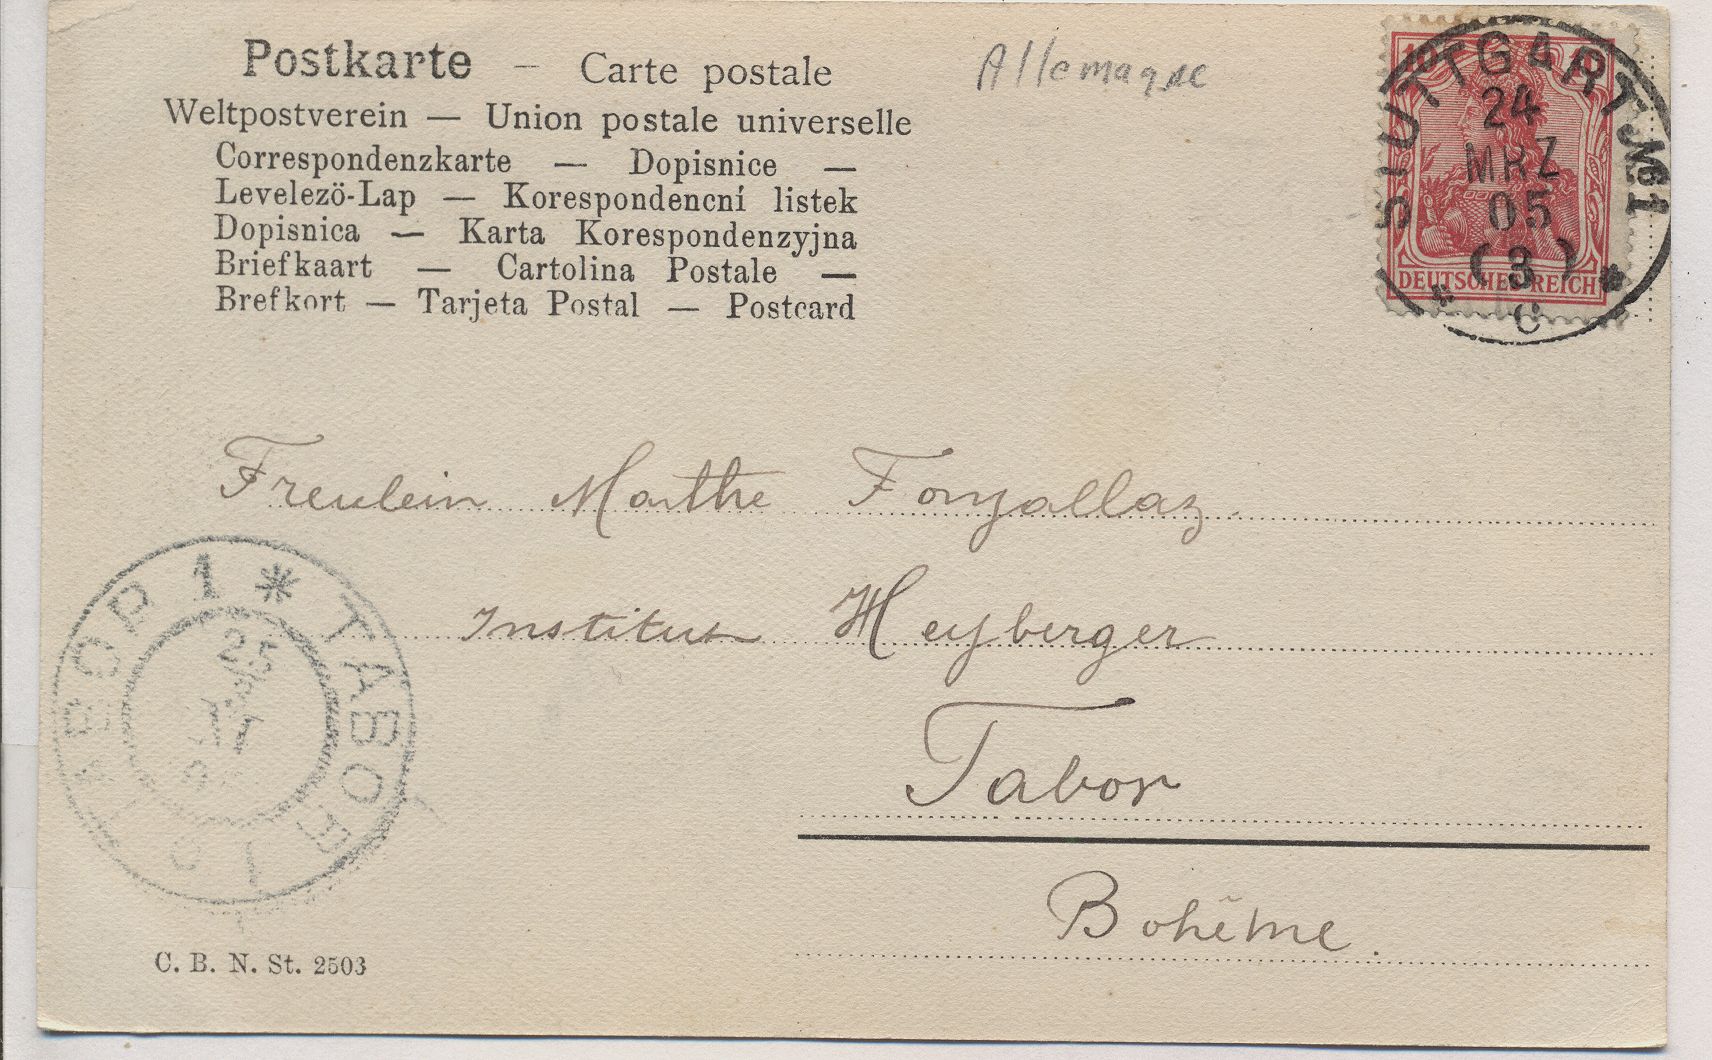 Postkarte – Carte postale
Allemagne
Weltpostverein — Union postale universelle
Correspondenzkarte — Dopisnice —
Levelezö-Lap — Korespondencní listek
Dopisnica — Karta Korespondenzyjna
Briefkaart — Cartolina Postale —
Brefkort — Tarjeta Postal — Postcard
10
DEUTSCHES REICH
STUTTGART №1
24
MRZ
05
(3)
* *
C
Freulein Marthe Fonjallaz.
Institut Heyberger
Tabor
Bohême.
TABOR 1 * TABOR
25
C. B. N. St. 2503